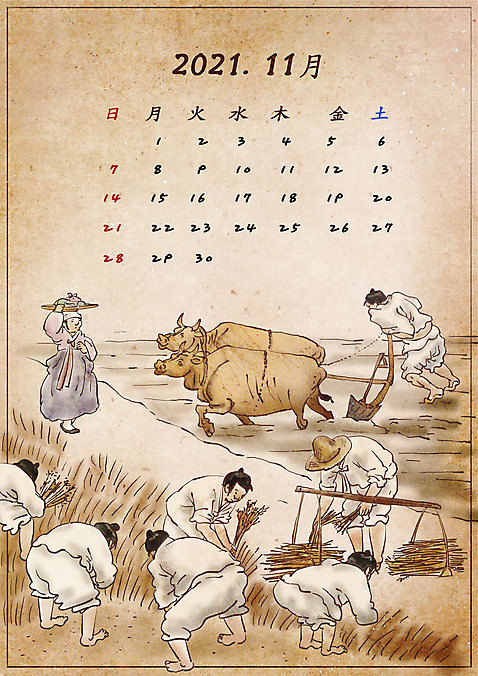 2021. 11月
日 月 火 水 木 金 土
1 2 3 4 5 6
7 8 9 10 11 12 13
14 15 16 17 18 19 20
21 22 23 24 25 26 27
28 29 30